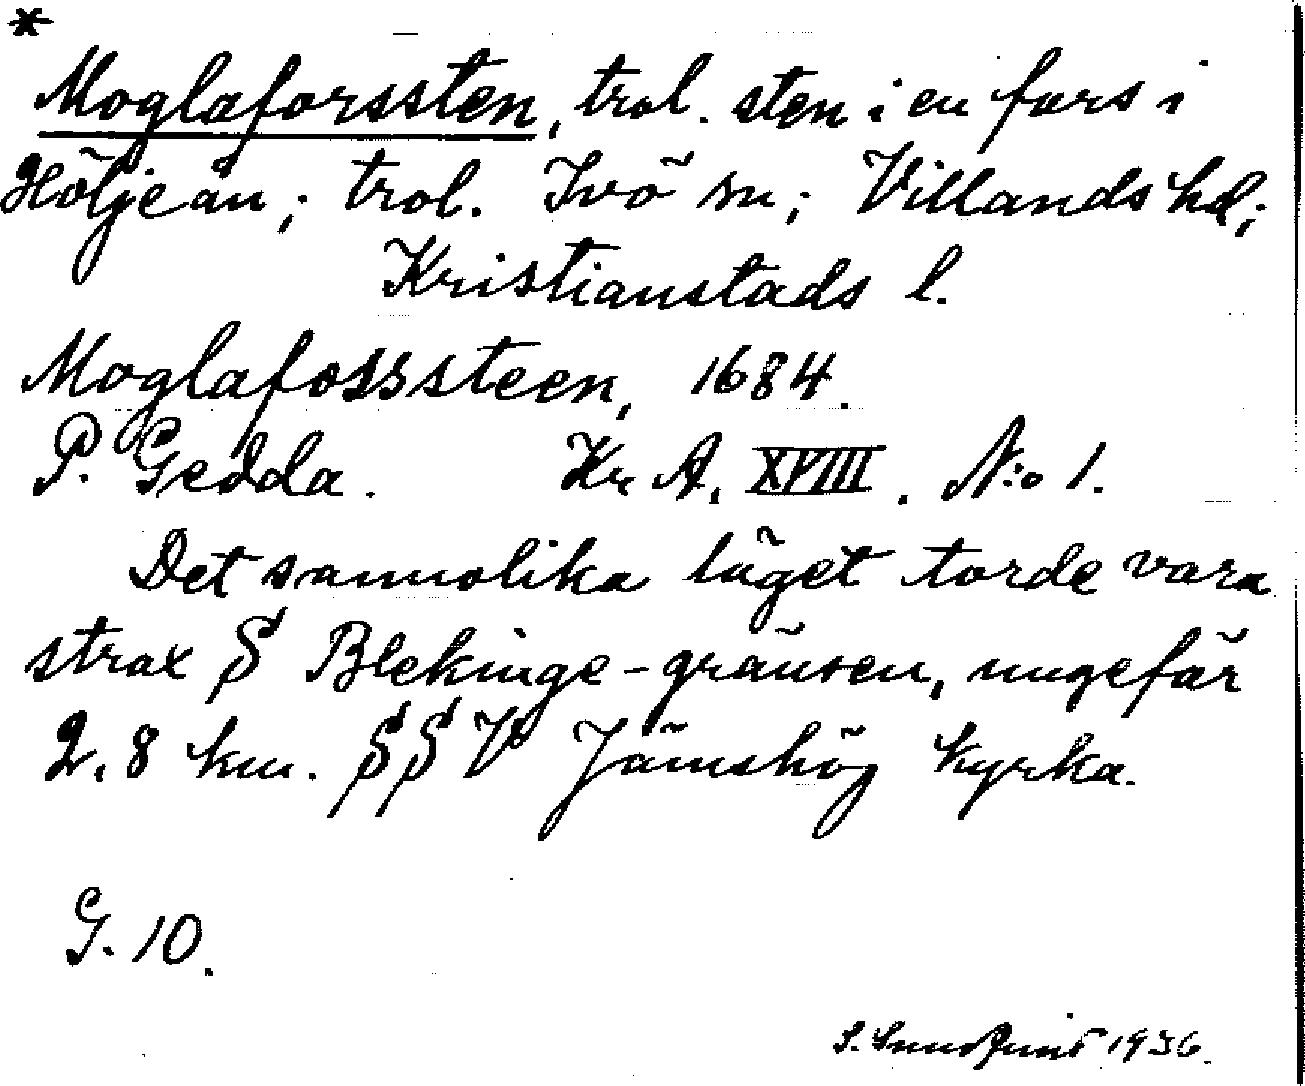 *
Moglaforssten, trol. sten i en fors i
Höljeån; trol. Ivö sn; Villands hd;
Kristianstads l.
Moglafosssteen, 1684.
P. Gedda. Kr A. XVIII. N:o 1.
Det sannolika läget torde vara
strax S Blekinge-gränsen, ungefär
2,8 km. SSV Jämshög kyrka.
G. 10.
S. Sundquist 1936.